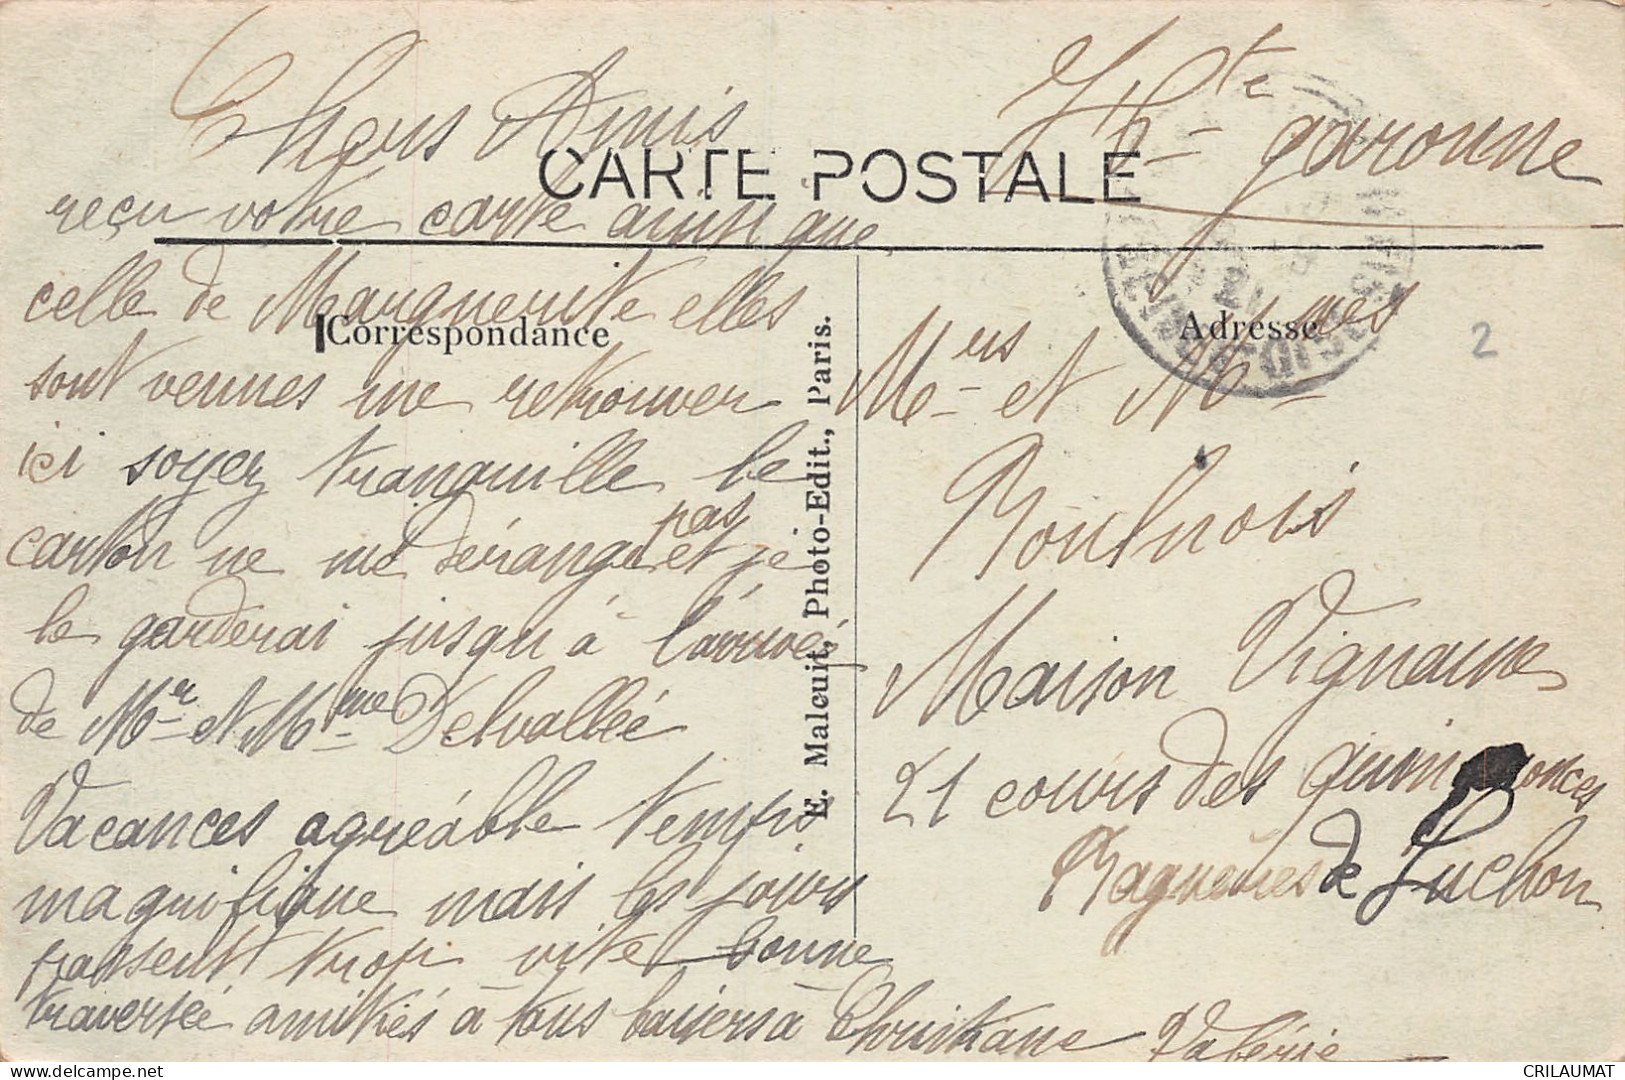 Chers Amis
CARTE POSTALE
reçu votre carte ainsi que
celle de Marguerite elles
Correspondance
sont venues me retrouver
ici soyez tranquille le
carton ne me dérange pas et je
le garderai jusqu'à l'arrivée
de Mr et Mme Delvallée
Vacances agréable temps
magnifique mais les jours
passent trop vite bonne
traversée amitiés à tous baisers à Christiane Valérie
E. Malcuit, Photo-Edit., Paris.
Hte garonne
Adresse
2
Mrs et Mmes
Boulnois
Maison Vignaux
21 cours des quinconces
Bagnères de Luchon
CRILAUMAT